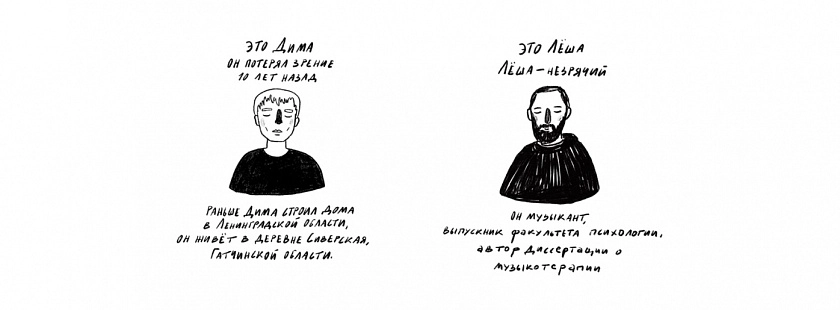 ЭТО ДИМА
ОН ПОТЕРЯЛ ЗРЕНИЕ
10 ЛЕТ НАЗАД
РАНЬШЕ ДИМА СТРОИЛ ДОМА
В ЛЕНИНГРАДСКОЙ ОБЛАСТИ,
ОН ЖИВЁТ В ДЕРЕВНЕ СИВЕРСКАЯ,
ГАТЧИНСКОЙ ОБЛАСТИ.
ЭТО ЛЁША
ЛЁША – НЕЗРЯЧИЙ
ОН МУЗЫКАНТ,
ВЫПУСКНИК ФАКУЛЬТЕТА ПСИХОЛОГИИ,
АВТОР ДИССЕРТАЦИИ О
МУЗЫКОТЕРАПИИ